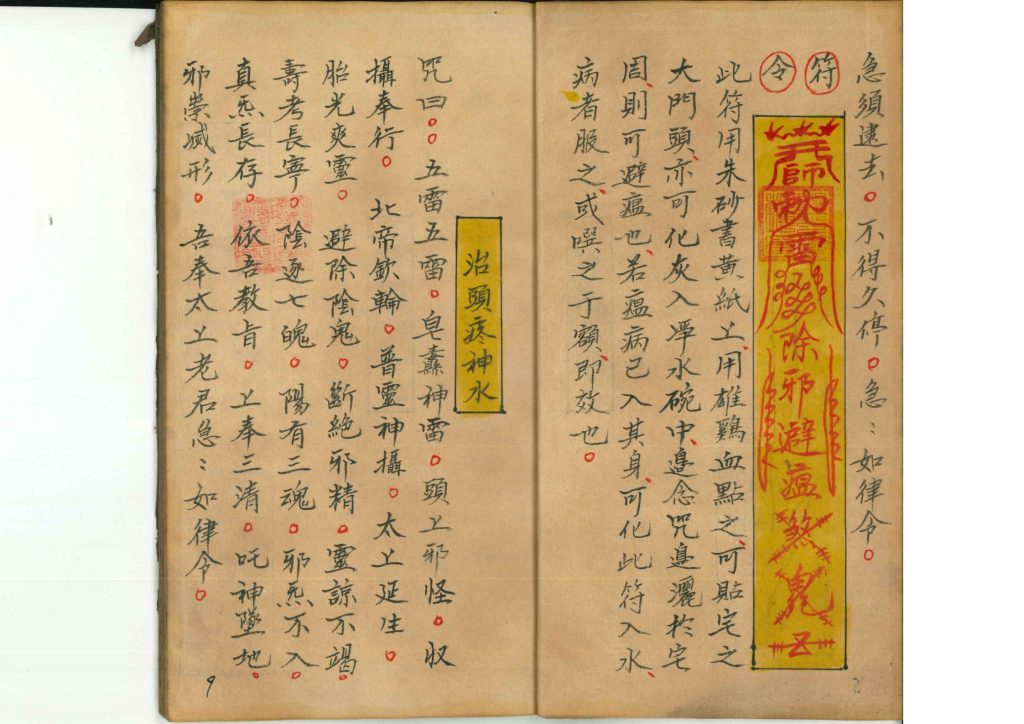 急須逮去。不得久停。急:如律令。
符
令
師敕雷 除邪避瘟煞鬼
此符用朱砂書黄紙上、用雄鷄血點之、可貼宅之
大門頭、亦可化灰入淨水碗中、邉念咒邉灑於宅
周、則可避瘟也、若瘟病已入其身、可化此符入水、
病者服之、或噀之于額、即效也。
治頭疼神水
咒曰:五雷五雷。皂纛神雷。頭上邪怪。收
攝奉行。北帝欽輪。普靈神攝。太上延生。
胎光爽靈。避除陰鬼。斷絶邪精。靈諒不竭。
壽考長寧。陰逐七魄。陽有三魂。邪炁不入。
真炁長存。依吾教旨。上奉三清。吒神墜地。
邪祟滅形。吾奉太上老君急:如律令。
9